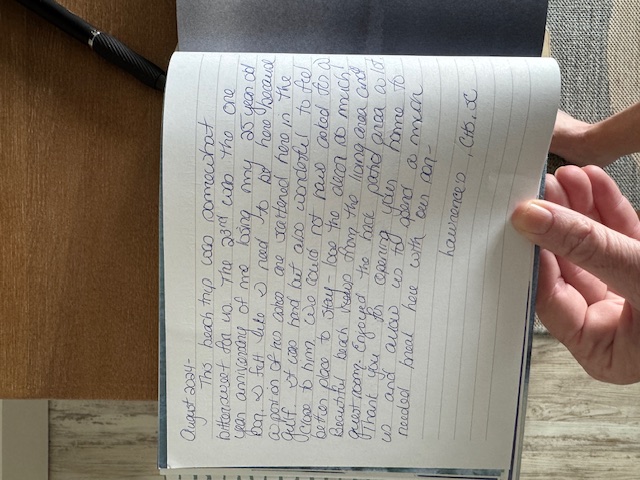 August 2024-
This beach trip was somewhat
bittersweet for us. The 23rd was the one
year anniversary of me losing my 25 year old
son. I felt like I need to be here because
a portion of his ashes are scattered here in the
Gulf. It was hard but also wonderful to feel
close to him. We could not have asked for a
better place to stay - love the decor so much!
Beautiful beach views from the living area and
guestroom. Enjoyed the back patio area a lot.
Thank you for opening your home to
us and allow us to spend a much
needed break here with our
Lawrence's, SC